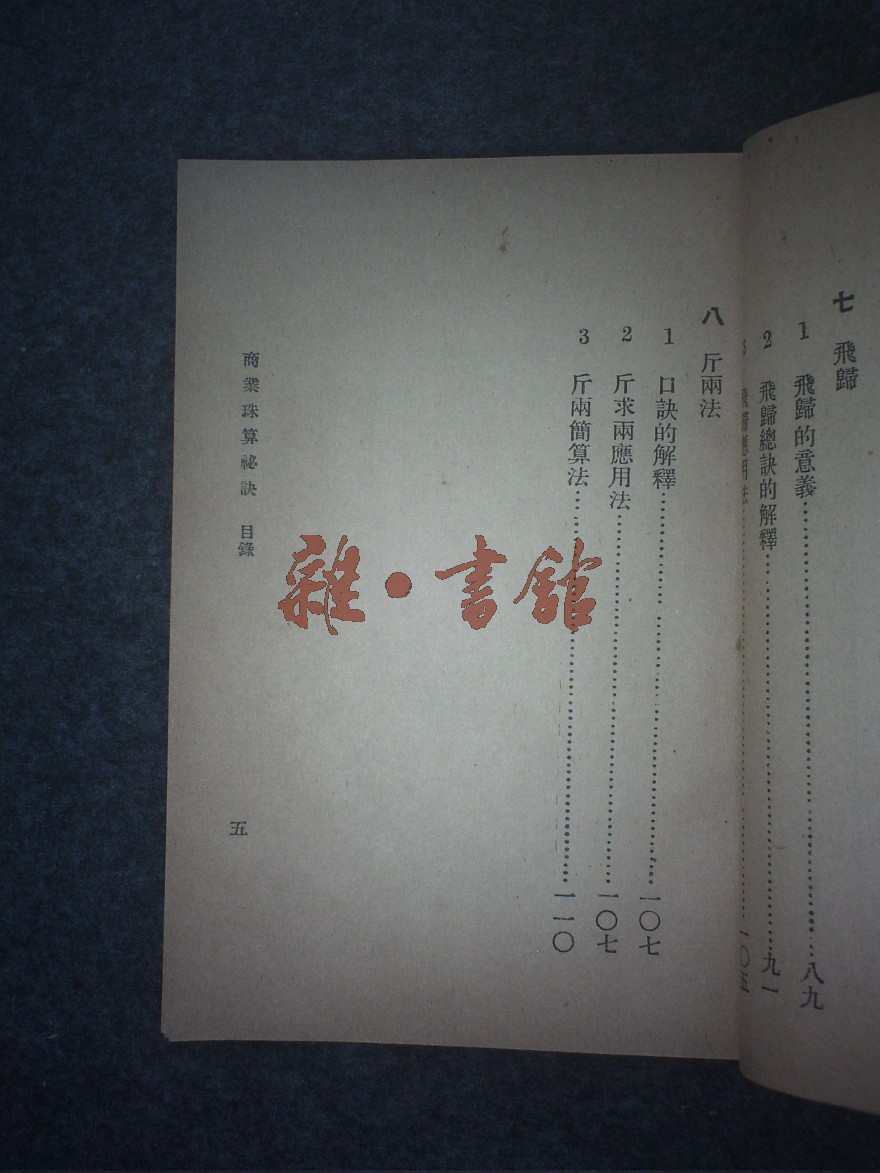 七　飛歸
1　飛歸的意義……八九
2　飛歸總訣的解釋……九一
3　飛歸應用法……一〇五
八　斤兩法
1　口訣的解釋……一〇七
2　斤求兩應用法……一〇七
3　斤兩簡算法……一一〇
商業珠算祕訣　目錄
五
雜·書館